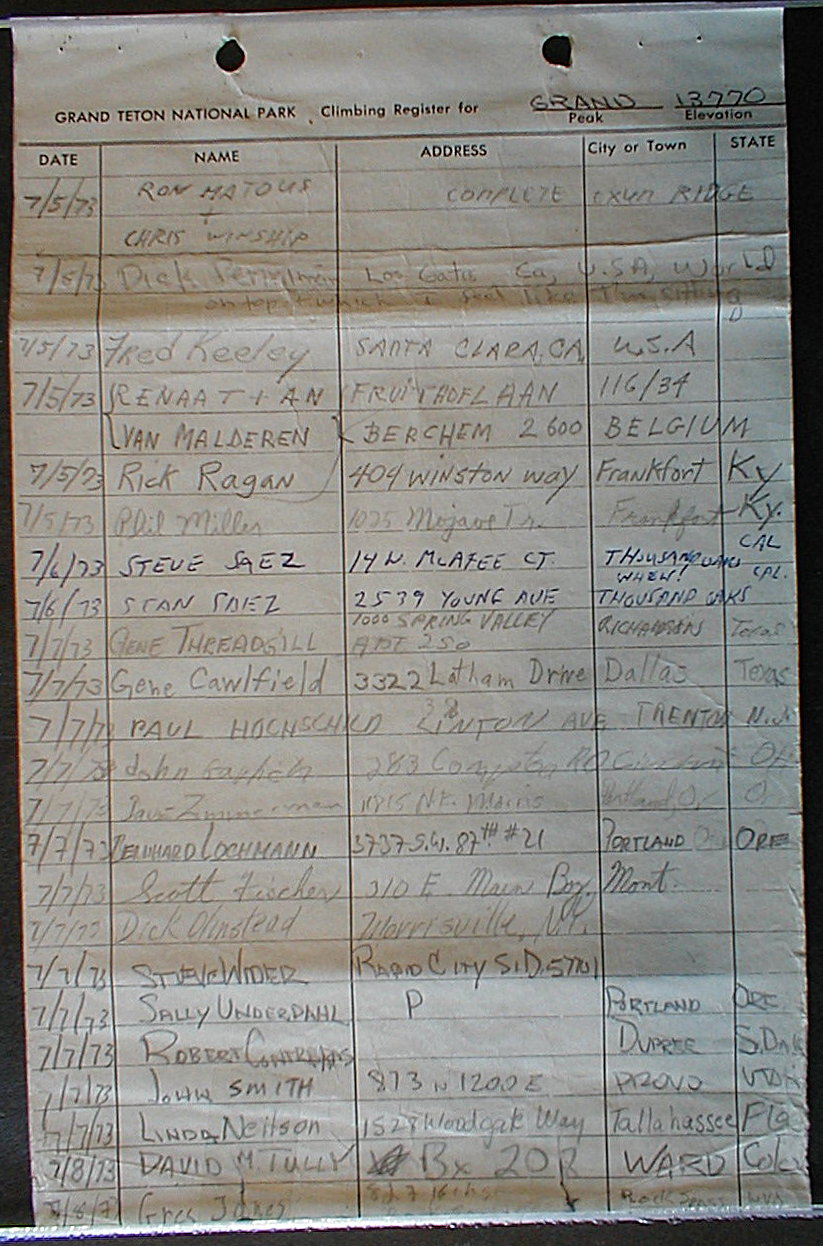 GRAND TETON NATIONAL PARK Climbing Register for GRAND 13770
Peak Elevation
DATE NAME ADDRESS City or Town STATE
7/5/73 RON MATOUS COMPLETE EXUM RIDGE
+
CHRIS WINSHIP
7/5/73 Dick Los Gatos Ca, U.S.A, World
on top of which I feel like I'm sitting
7/5/73 Fred Keeley SANTA CLARA, CA U.S.A
7/5/73 RENAAT + AN FRUITHOFLAAN 116/34
VAN MALDEREN BERCHEM 2600 BELGIUM
7/5/73 Rick Ragan 404 WINSTON Way Frankfort Ky
7/5/73 Phil Miller 1025 Mojave Tr. Frankfort Ky.
7/6/73 STEVE SAEZ 14 N. McAFEE CT. THOUSAND OAKS CAL
WHEW! CAL.
7/6/73 STAN SAEZ 2539 YOUNG AVE THOUSAND OAKS
7/7/73 GENE THREADGILL 1000 SPRING VALLEY RICHARDSON Texas
APT 250
7/7/73 Gene Cawlfield 3322 Latham Drive Dallas Texas
7/7/73 PAUL HOCHSCHILD 38 LINTON AVE TRENTON N.J.
7/7/73 John 283 Compton RD
7/7/73 Dave Zimmerman 11815 N.E. Morris Portland, Or
7/7/73 BERNHARD LOCHMANN 3737 S.W. 87TH #21 PORTLAND ORE
7/7/73 Scott Fischer 310 E. Main Boz. Mont.
7/7/73 Dick Olmstead Morrisville, N.Y.
7/7/73 STEVE WIDER RAPID CITY S.D. 57701
7/7/73 SALLY UNDERDAHL P PORTLAND ORE
7/7/73 ROBERT CONTRERAS DUPREE S.Dak
7/7/73 JOHN SMITH 873 N 1200 E PROVO UTAH
7/7/73 LINDA Neilson 1528 Woodgate Way Tallahassee Fla
7/8/73 DAVID M. TULLY Bx 207 WARD Colo
7/8/7 Greg Jones 827 Rock Springs